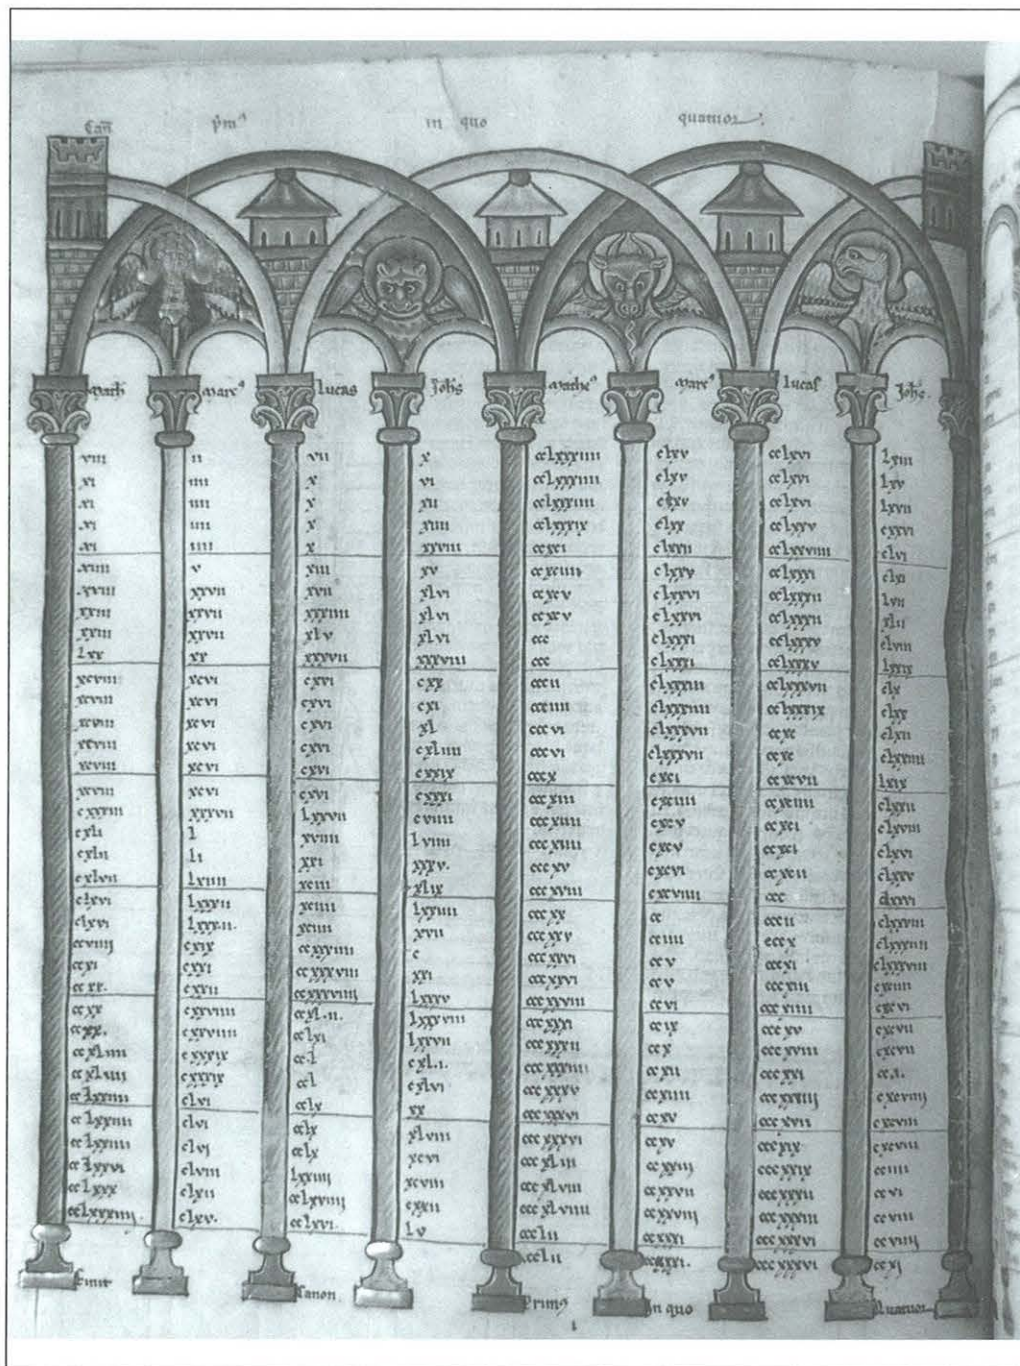 Can̄ p̄m⁹ in quo quatuor.
Math̄ Marc⁹ Lucas Joh̄s Mathe⁹ Marc⁹ Lucas Joh̄s.
viii ii vii x cclxxxiiii clxv cclxvi lxiii
xi iiii x vi cclxxxiiii clxv cclxvi lxv
xi iiii x xii cclxxxiiii clxv cclxvi lxvii
xi iiii x xiiii cclxxxix clxx cclxxv cxxvi
xi iiii x xxviii ccxci clxxii cclxxviiii clvi
xiiii v xiii xv ccxciiii clxxv cclxxxi clxi
xviii xxvii xvii xlvi ccxcv clxxvi cclxxxii lvii
xxiii xxvii xxxiiii xlvi ccxcv clxxvi cclxxxii xlii
xxiii xxvii xlv xlvi ccc clxxxi cclxxxv clviii
lxx xx xxxvii xxxviii ccc clxxxi cclxxxv lxxix
xcviii xcvi cxvi cxx cccii clxxxiii cclxxxvii clx
xcviii xcvi cxvi cxi ccciiii clxxxiiii cclxxxix clxx
xcviii xcvi cxvi xl cccvi clxxxvii ccxc clxii
xcviii xcvi cxvi cxliiii cccvi clxxxvii ccxc clxxiiii
xcviii xcvi cxvi cxxix cccx cxci ccxcvii lxix
xcviii xcvi cxvi cxxxi cccxiii cxciiii ccxciiii clxxii
cxxxiii xxxvii lxxvii cviiii cccxiiii cxcv ccxci clxviii
cxli l xviiii lviiii cccxiiii cxcv ccxci clxvi
cxlii li xxi xxxv. cccxv cxcvi ccxcii clxxv
cxlvii lxiiii xciii xlix cccxviii cxcviiii ccc clxxvi
clxvi lxxxii xciiii lxxiiii cccxx cc cccii clxxviii
clxvi lxxxii. xciiii xvii cccxxv cciiii cccx clxxxiiii
ccviiij cxix ccxxxiiii c cccxxvi ccv cccxi clxxxviii
ccxi cxxi ccxxxviii xxi cccxxvi ccv cccxiii cxciiii
ccxx. cxxii ccxxxviiij lxxxv cccxxviii ccvi cccxiiii cxcvi
ccxx cxxviiii ccxl.ii. lxxxviii cccxxxi ccix cccxv cxcvii
ccxx. cxxviiii cclxi lxxvii cccxxxii ccx cccxviii cxcvii
ccxliiii cxxxix ccl cxl.i. cccxxxiiii ccxii cccxxi cc.i.
ccxliiii cxxxix ccl cxlvi cccxxxv ccxiiii cccxxiiij cxcviiij
cclxxiiii clvi cclx xx cccxxxvi ccxv cccxvii cxcviii
cclxxiiii clvi cclx xlviii cccxxxvi ccxv cccxix cxcviii
cclxxiiii clvj cclx xcvi cccxliii ccxxiij cccxxix cciiii
cclxxvi clviii lxxiiij xcviii cccxlviii ccxxvii cccxxxii ccvi
cclxxx clxii cclxviiij cxxii cccxlviiii ccxxviij cccxxxiii ccviii
cclxxxiiij. clxv. cclxvi. lv ccclii ccxxxi cccxxxvi ccviiij
ccclii ccxxxi. cccxxxvi ccxj
finit Canon. Prim⁹ in quo Quatuor